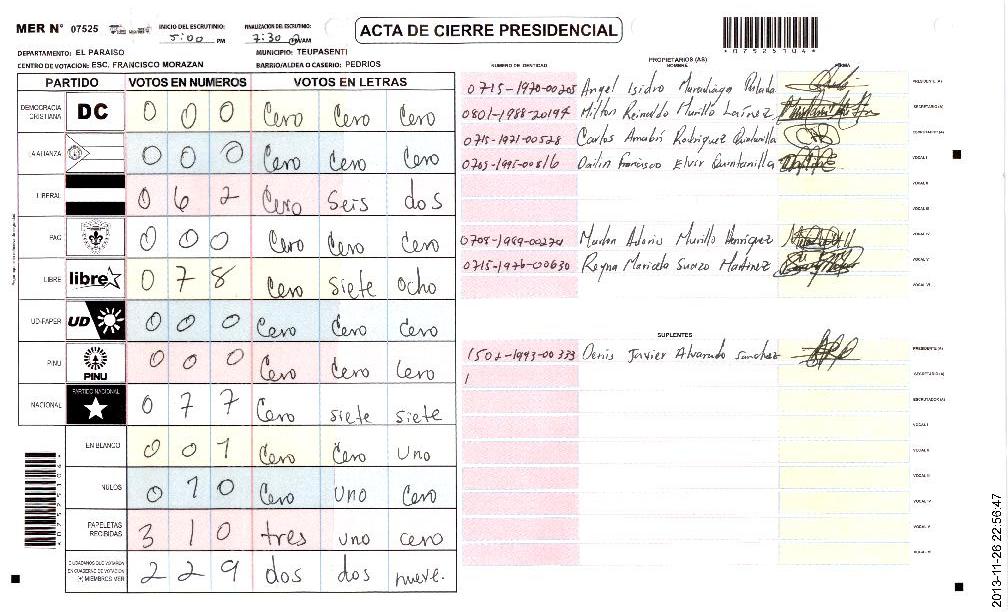 MER N° 07525 INICIO DEL ESCRUTINIO: 5:00 PM FINALIZACION DEL ESCRUTINIO: 7:30 PM/AM
ACTA DE CIERRE PRESIDENCIAL
DEPARTAMENTO: EL PARAISO MUNICIPIO: TEUPASENTI
CENTRO DE VOTACION: ESC. FRANCISCO MORAZAN BARRIO/ALDEA O CASERIO: PEDRIOS
PARTIDO VOTOS EN NUMEROS VOTOS EN LETRAS
DEMOCRACIA CRISTIANA DC 0 0 0 Cero Cero Cero
LA ALIANZA 0 0 0 Cero Cero Cero
LIBERAL 0 6 2 Cero Seis dos
PAC 0 0 0 Cero Cero Cero
LIBRE libre 0 7 8 Cero Siete Ocho
UD-FAPER UD 0 0 0 Cero Cero Cero
PINU PINU 0 0 0 Cero Cero Cero
NACIONAL PARTIDO NACIONAL 0 7 7 Cero siete siete
EN BLANCO 0 0 1 Cero Cero Uno
NULOS 0 1 0 Cero uno Cero
PAPELETAS RECIBIDAS 3 1 0 tres uno cero
CIUDADANOS QUE VOTARON EN CUADERNO DE VOTACION (+) MIEMBROS MER 2 2 9 dos dos nueve.
*07525104*
*07525104*
PROPIETARIOS (AS)
NUMERO DE IDENTIDAD NOMBRE FIRMA
0715-1970-00205 Angel Isidro Maradiaga PRESIDENTE (A)
0801-1988-20194 Milton Reinaldo Murillo Laínez SECRETARIO (A)
0715-1971-00528 Carlos Amabis Rodriguez Quintanilla ESCRUTADOR (A)
0703-1995-00816 Francisco Elvir Quintanilla VOCAL I
VOCAL II
VOCAL III
Murillo Henriquez VOCAL IV
0715-1976-00630 Reyna Maricela Suazo Martinez VOCAL V
VOCAL VI
SUPLENTES
1502-1993-00333 Denis Javier Alvarado Sanchez PRESIDENTE (A)
SECRETARIO (A)
ESCRUTADOR (A)
VOCAL I
VOCAL II
VOCAL III
VOCAL IV
VOCAL V
VOCAL VI
2013-11-26 22:56:47